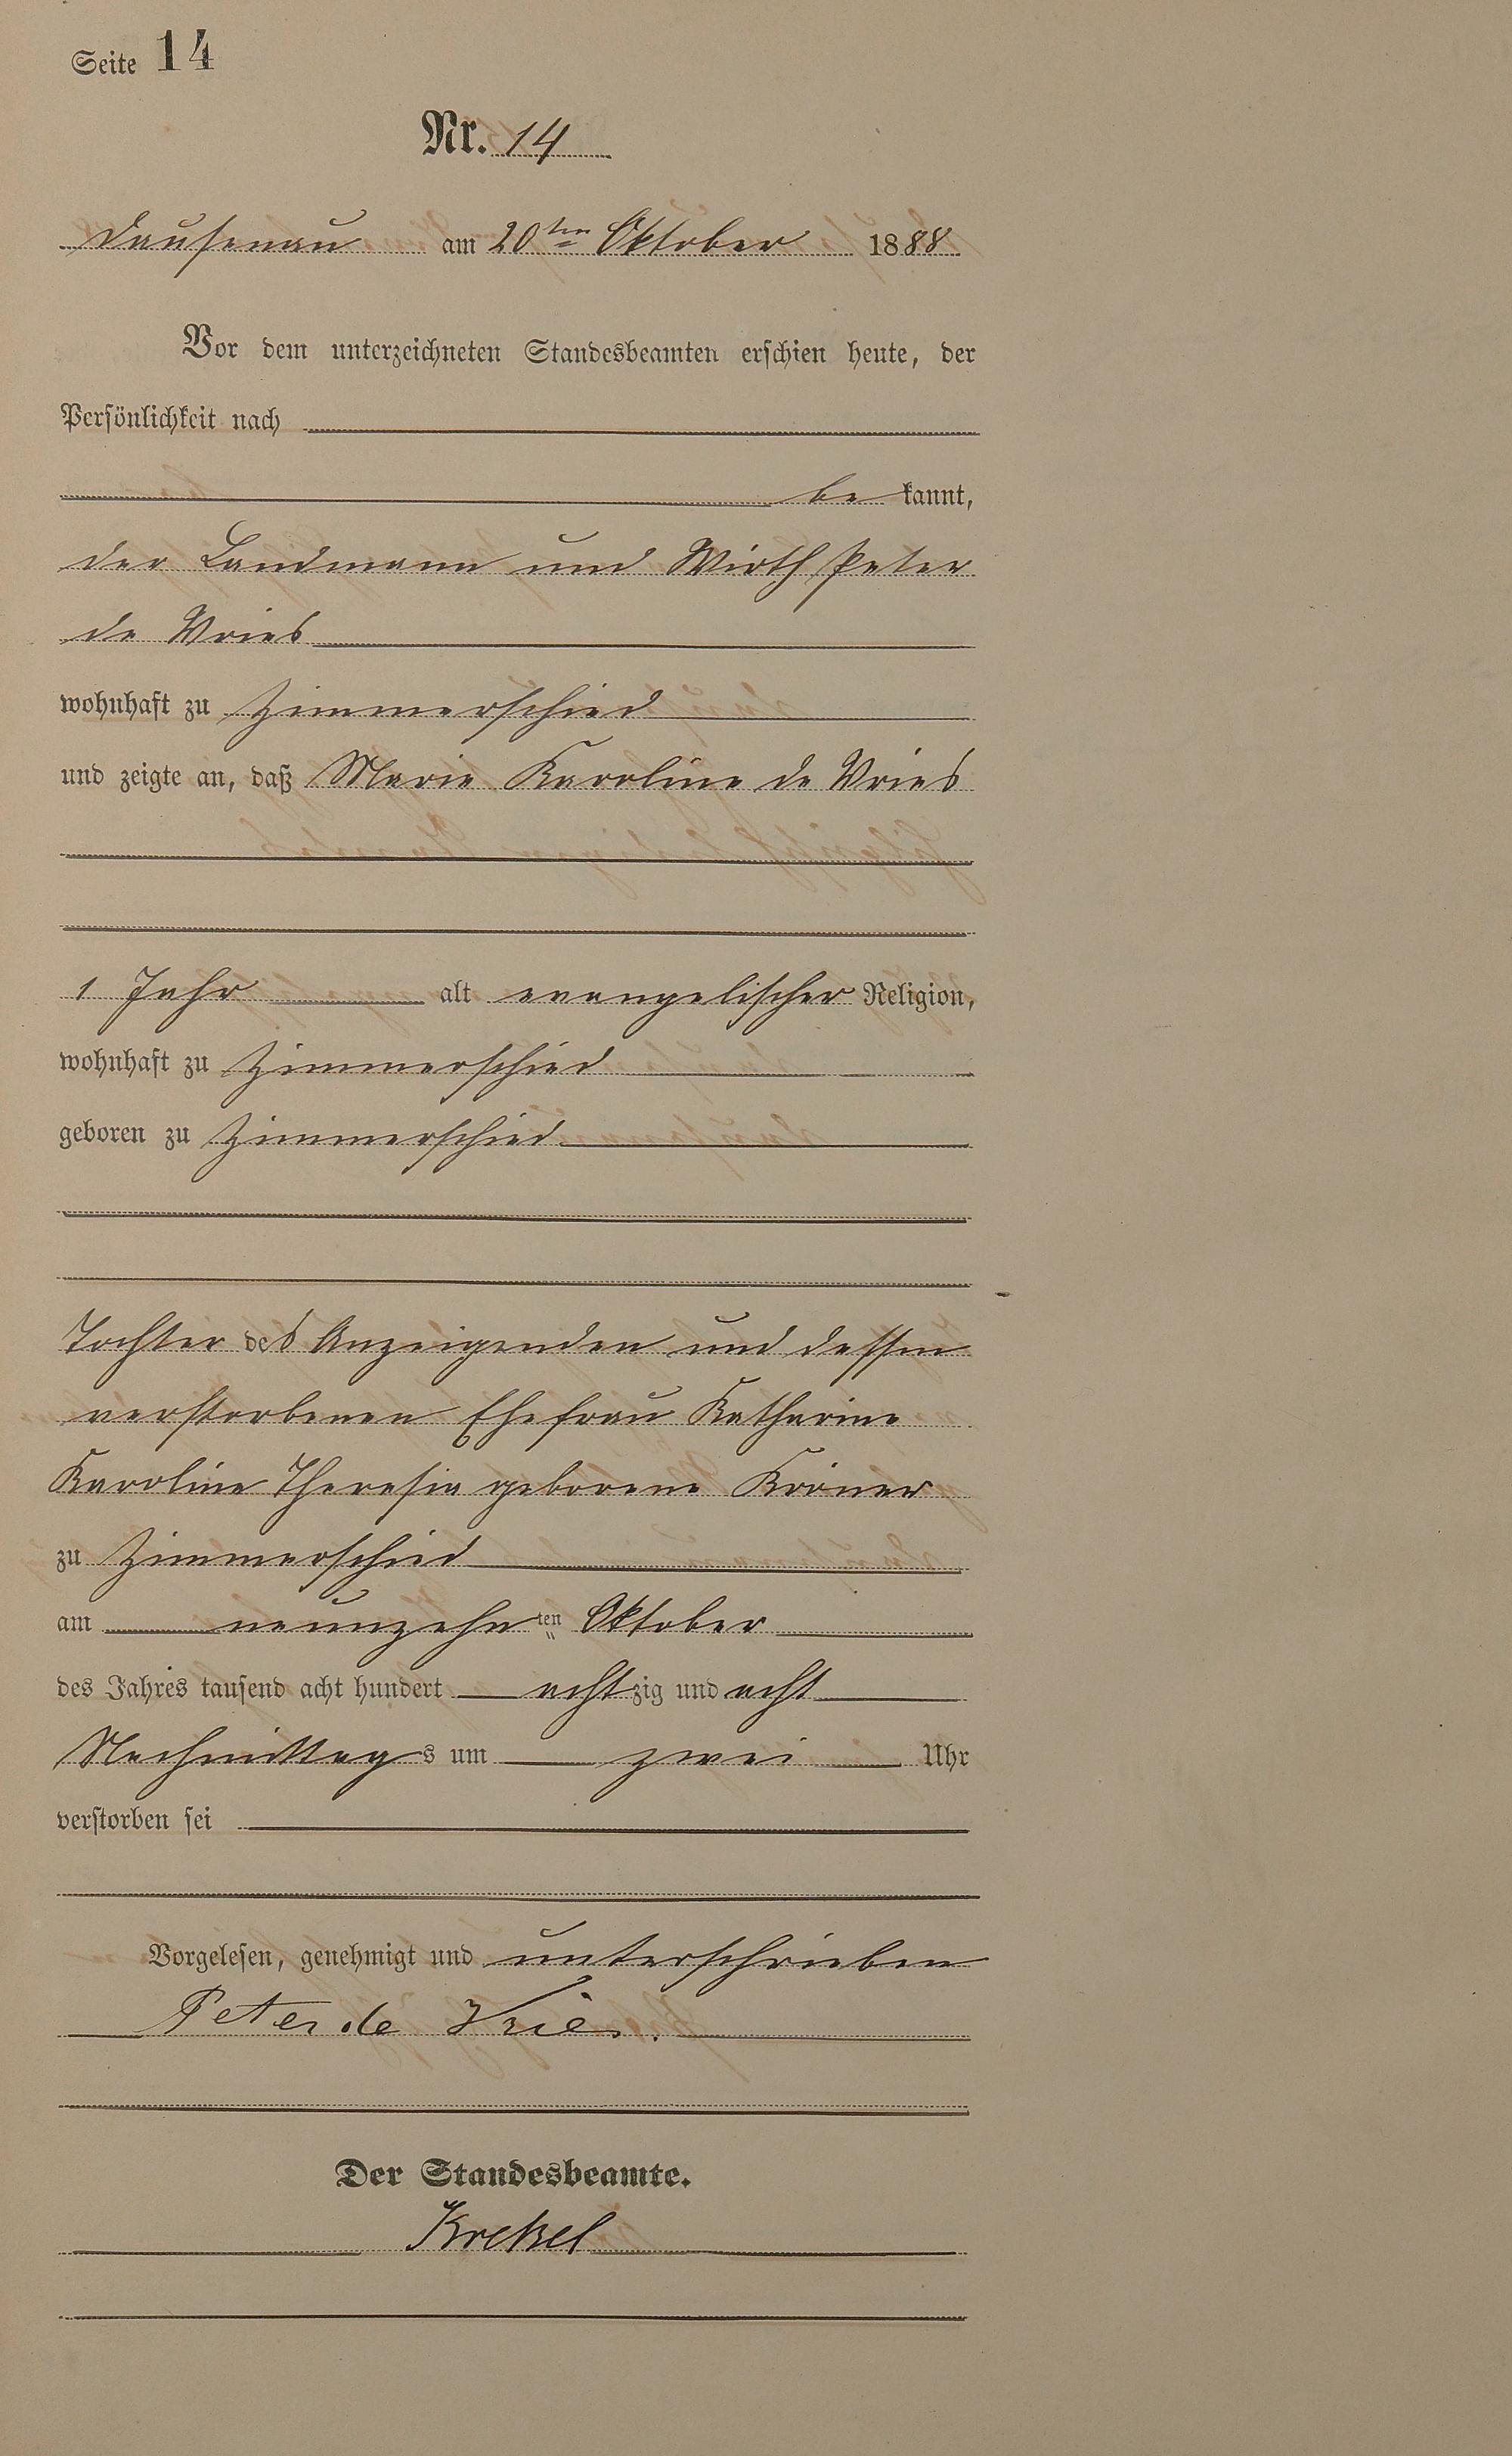 Seite 14
Nr. 14
Dausenau am 20ten Oktober 1888
Vor dem unterzeichneten Standesbeamten erschien heute, der
Persönlichkeit nach
be kannt,
der Landmann und Wirth Peter
de Vries
wohnhaft zu Zimmerschied
und zeigte an, daß Marie Karoline de Vries
1 Jahr alt evangelischer Religion,
wohnhaft zu Zimmerschied
geboren zu Zimmerschied
Tochter des Anzeigenden und dessen
verstorbenen Ehefrau Katharine
Karoline Theresia geborene Körner
zu Zimmerschied
am neunzehnten Oktober
des Jahres tausend acht hundert achtzig und acht
Nachmittags um zwei Uhr
verstorben sei
Vorgelesen, genehmigt und unterschrieben
Peter de Vries.
Der Standesbeamte.
Krekel